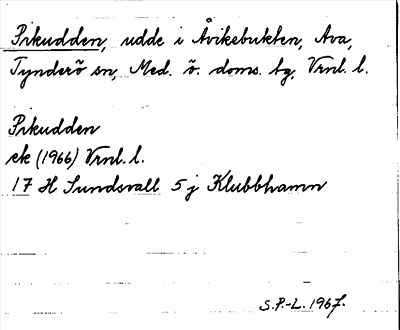 Pikudden, udde i Åvikebukten, Ava,
Tynderö sn, Med. ö. doms. tg, Vrnl. l.
Pikudden
ek (1966) Vrnl. l.
17 H Sundsvall 5 j Klubbhamn
S.P.-L. 1967.